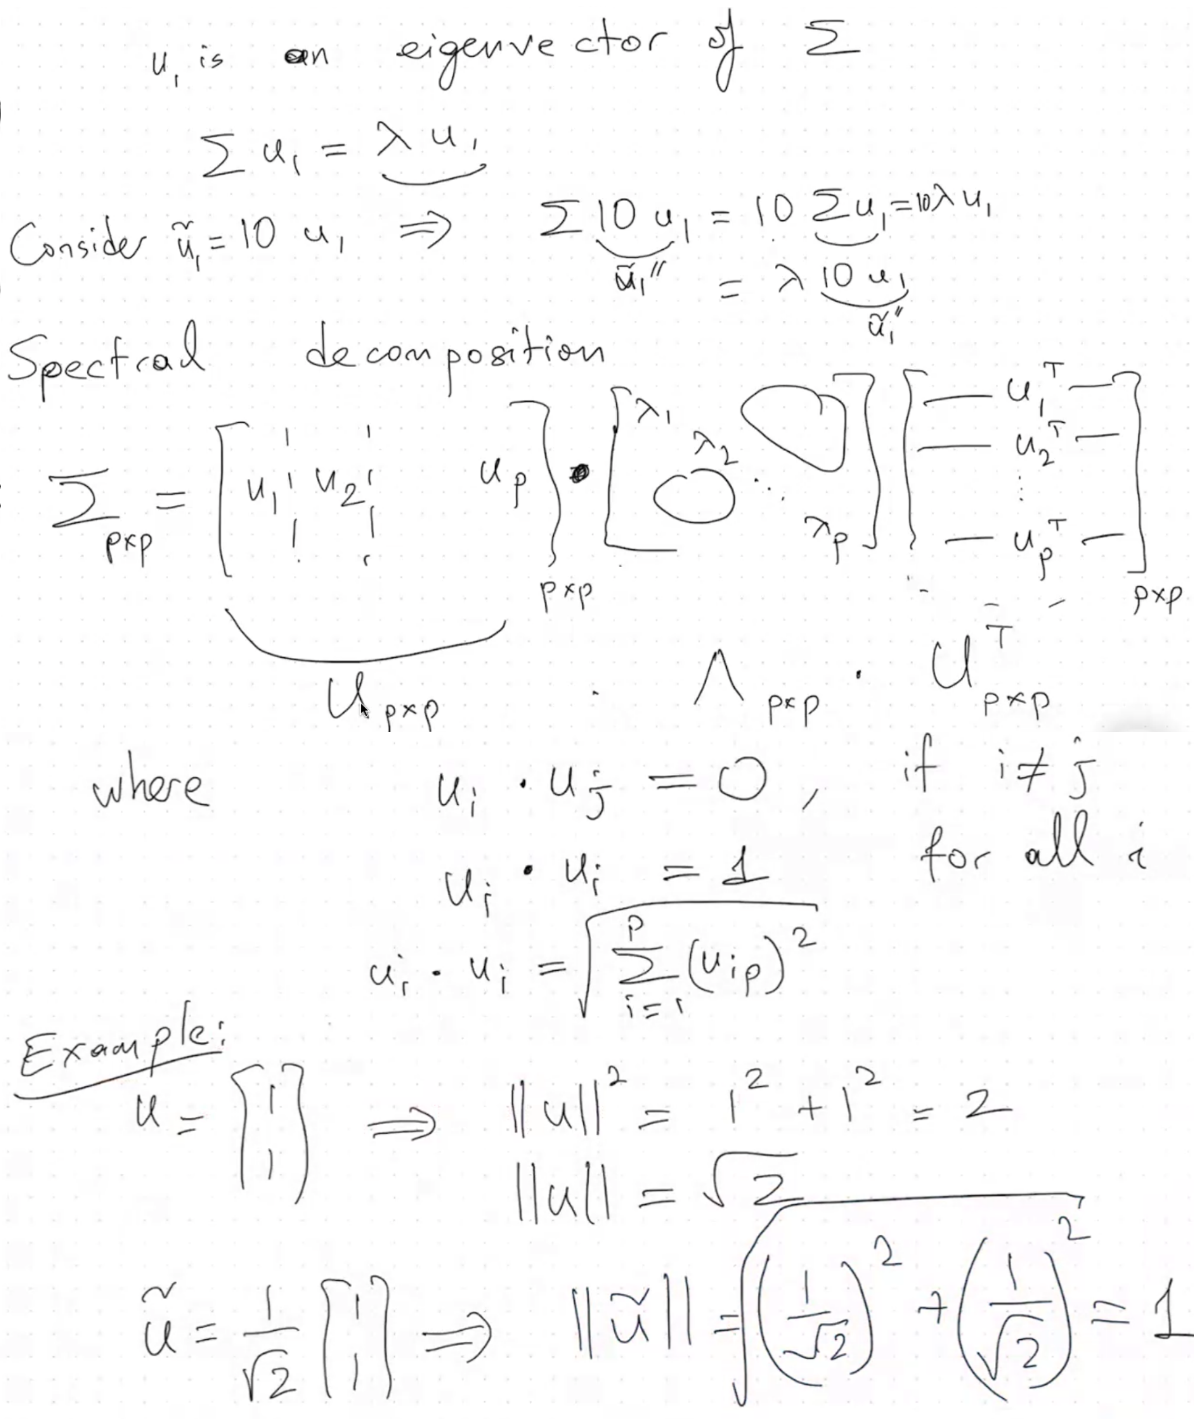 u₁ is an eigenvector of Σ
Σ u₁ = λ u₁
Consider ũ₁ = 10 u₁ ⇒ Σ 10 u₁ = 10 Σu₁ = 10λ u₁
ũ₁" = λ 10 u₁
ũ₁"
Spectral decomposition
Σ p×p = [ u₁ u₂ u_p ] p×p • [ λ₁ λ₂ ⋱ λ_p ] [ — u₁ᵀ — — u₂ᵀ — ⋮ — u_pᵀ — ] p×p
U p×p · Λ p×p · Uᵀ p×p
where u_i · u_j = 0 , if i ≠ j
u_i · u_i = 1 for all i
u_i · u_i = √( Σ_{i=1}^{p} (u_{ip})² )
Example:
u = [1 1] ⇒ ||u||² = 1² + 1² = 2
||u|| = √2
ũ = 1/√2 [1 1] ⇒ ||ũ|| = √( (1/√2)² + (1/√2)² ) = 1